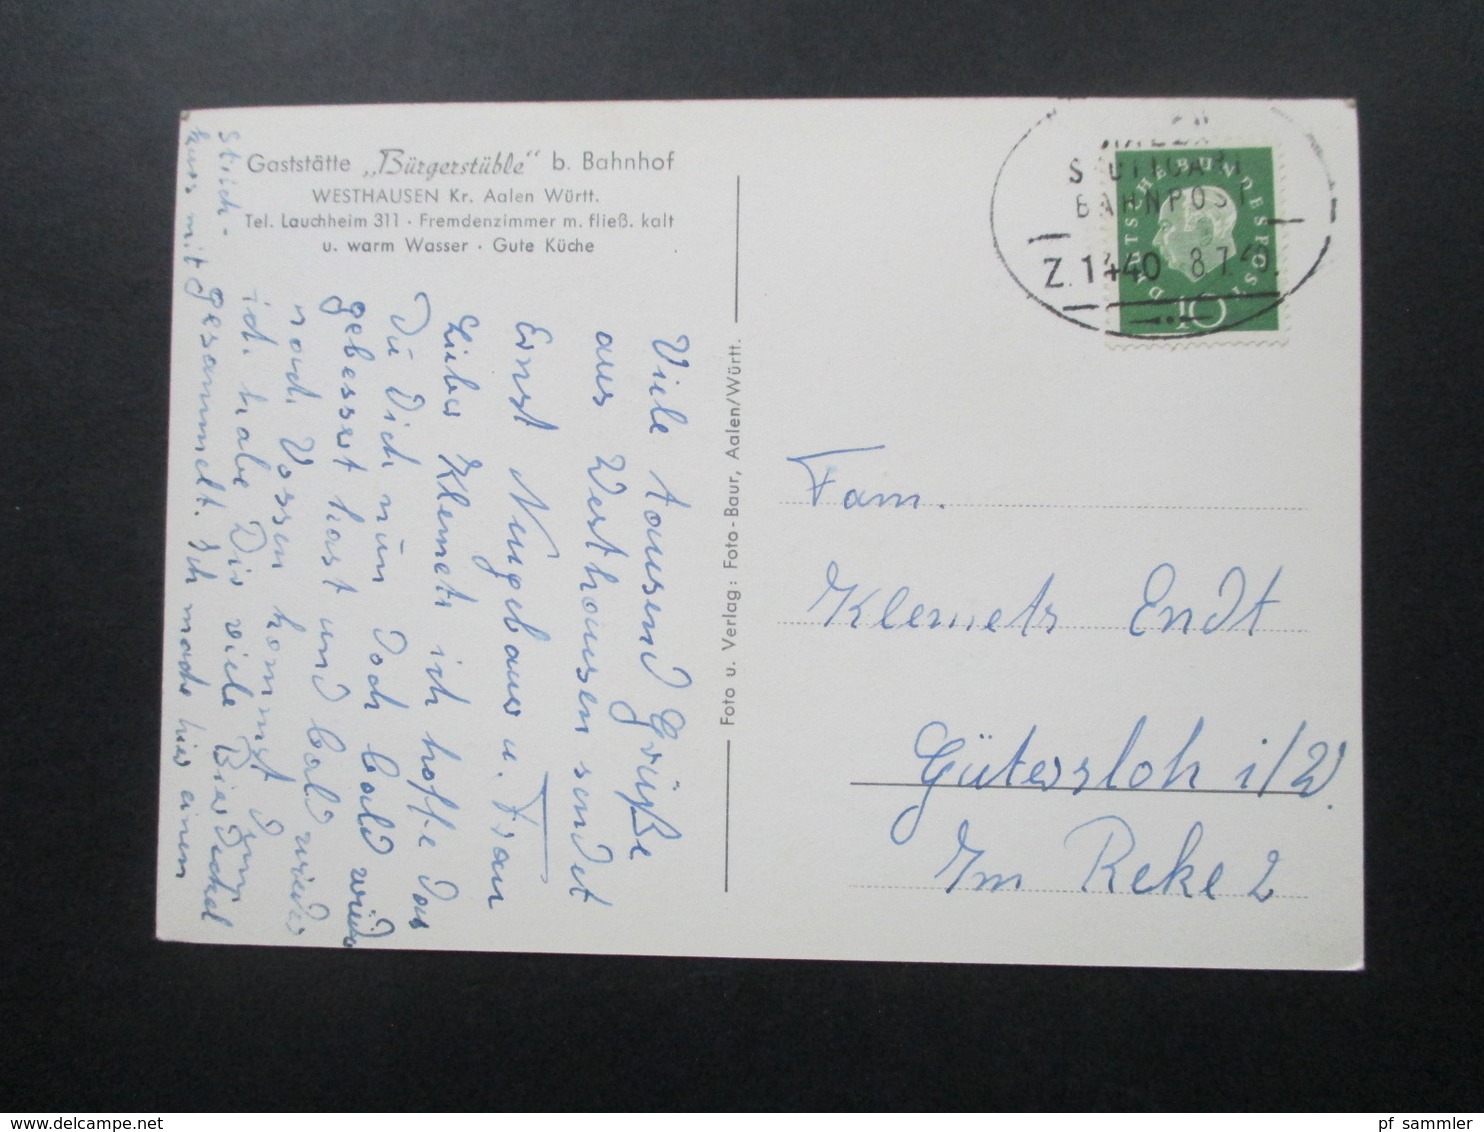 Gaststätte „Bürgerstüble“ b. Bahnhof
WESTHAUSEN Kr. Aalen Württ.
Tel. Lauchheim 311 · Fremdenzimmer m. fließ. kalt
u. warm Wasser · Gute Küche
Viele tausend Grüße
aus Westhausen sendet
Ernst Neugebauer u. Frau
Lieber Klemets ich hoffe das
Du Dich nun doch bald wieder
gebessert hast und bald wieder
nach Vossen kommst denn
ich habe Dir viele Bierdeckel
gesammelt. Ich mache hier einen
kurs mit
Strich-
Foto u. Verlag: Foto-Baur, Aalen/Württ.
STUTTGART
BAHNPOST
Z. 1440 8.7.
DEUTSCHE BUNDESPOST
10
Fam.
Klemets Endt
Gütersloh i/W.
Im Reke 2
pf_sammler